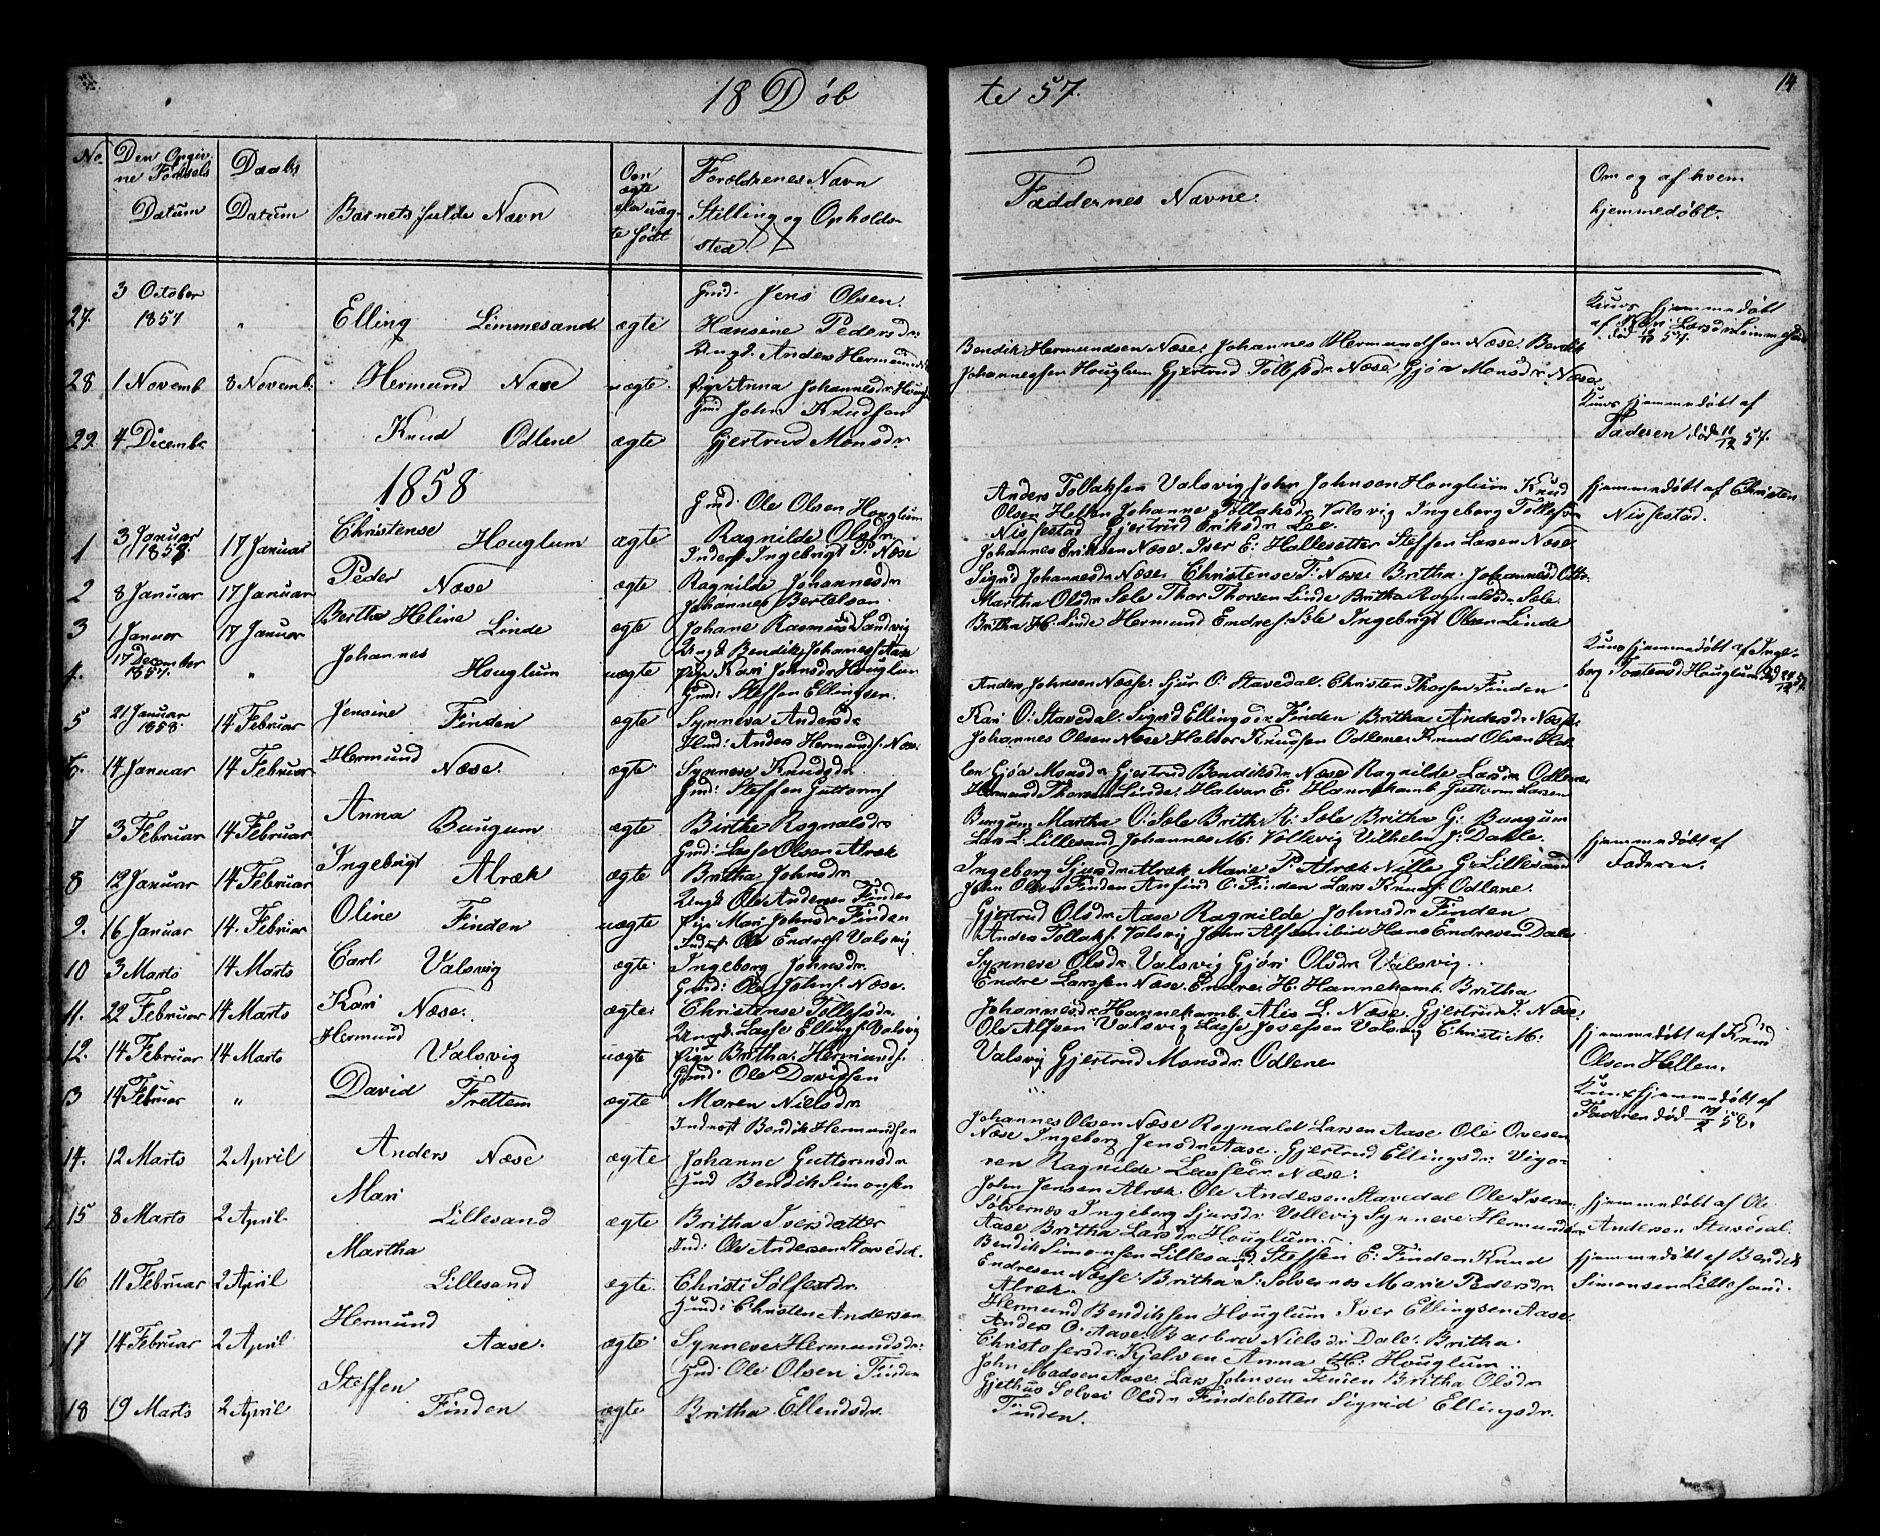 18 Døb
te 57.
14
No
Den Opgiv-
ne Fødsels
Datum
Daabs
Datum
Barnets fulde Navn
Om
ægte
eller uæg-
te født
Forældrenes Navn
Stilling og Opholds-
sted.
Faddernes Navne.
Om og af hvem
hjemmedøbt.
27. 3 October 1857 " Elling Limmesand ægte Gmd. Jens Olsen.
Hansine Pedersdr.
Kuns hjemmedøbt
28 1 Novemb. 8 Novemb. Hermund Næse uægte Ungk. Anders Hermunds.
Pige Anna Johannesdr. Houglum
Bendik Hermundsen Næse. Johannes Hermundsen Næse. Bendik
Johannessen Houglum Gjertrud Tollefsdr. Næse. Gjøa Monsdr. Næse.
29. 4 Decembr. Knud Odlene ægte Gmd John Knudsen
Gjertrud Monsdr.
Kuns hjemmedøbt af
Faderen død 57.
1858
1 3 Januar 17 Januar Christense Houglum ægte Gmd. Ole Olsen Houglum
Ragnilde Olsdr.
Anders Tollaksen Valsvig John Johnsen Houglum Knud
Olsen Hellen Johanne Tollaksdr. Valsvig Ingeborg Tollefsdr.
Nissestad Gjertrud Eriksdr. Lee.
hjemmedøbt af Christen
Nissestad.
2 8 Januar 17 Januar Peder Næse ægte Inderst. Ingebrigt P. Næse
Ragnilde Johannesdr.
Johannes Eriksen Næse. Iver E. Hallesetter Steffen Larsen Næse
Sigrid Johannesdr. Næse. Christense T. Næse. Britha Johannesd.
3 1 Januar 17 Januar Bertha Heline Linde ægte Johannes Bertelsen.
Johane Rasmusd. Sandvig
Martha Olsdr. Sole Thor Thorsen Linde Britha Rognaldsdr. Sole.
Britha H. Linde Hermund Endres. Sole Ingebrigt Olsen Linde
4. 17 December 1857. " Johannes Houglum uægte Ungk Bendik Johaness. Aase
Pige Kari Johnsdr. Houglum
Kuns hjemmedøbt af Inge-
borg Torstensd Houglum
5 21 Januar 1858. 14 Februar Jensine Finden ægte Gmd: Steffen Ellingsen.
Synneva Andersdr.
Anders Johnsen Næse. Sjur O. Stavedal. Christen Thorsen Finden
Kari O. Stavedal. Sigrid Ellingsdr. Finden Britha Andersdr. Næse.
6. 14 Januar 14 Februar Hermund Næse. ægte Gmd: Anders Hermunds. Næse
Synneve Knudsdr.
Johannes Olsen Næse Halvor Knudsen Odlene. Knud Olsen Od-
len Gjøa Monsdr. Gjertrud Bendiksdr. Næse Ragnilde Larsdr. Odlene.
7 3 Februar 14 Februar Anna Baugum ægte Gmd: Steffen Guttorms
Birthe Rognalsdr.
Hermund Thorsen Linde. Halvar E. Hannekamb Guttorm Larsen
Baugum Martha O. Sole Britha R. Sole Britha G. Baugum
8 12 Januar 14 Februar Ingebrigt Alræk ægte Gmd: Lasse Olsen Alræk
Britha Johnsdr.
Lars L. Lillesand Johannes M. Vollevig Vilhelm J. Dahle.
Ingeborg Sjursdr. Alræk Marie P. Alræk Nille G. Lillesand
hjemmedøbt af
Faderen.
9. 16 Januar 14. Februar Oline Finden uægte Ungk Ole Andersen Finden
Pige Mari Johnsdr. Finden
John Olsen Finden Ansind O. Finden Lars Knuds. Odlene.
Gjertrud Olsdr. Aase Ragnilde Johnsdr. Finden
10 3 Marts 14 Marts Carl Valsvig ægte Inderst. Ole Endres. Valsvig
Ingeborg Johnsdr.
Anders Tollaks. Valsvig John Alfsen ibid Hans Endresen Dale
Synneve Olsdr. Valsvig Gjøri Olsdr. Valsvig.
11. 22 Februar 14 Marts Kari Næse. ægte. Gmd: Ole Johns. Næse.
Christense Tollefsdr.
Endre Larssen Næse. Endre H. Hannekamb. Britha
Johannesdr. Hannekamb Alis L. Næse. Gjertrud Næse.
12. 14 Februar 14 Marts Hermund Valsvig uægte Ungk Lasse Ellings. Valsvig
Pige Britha Hermunds.
Ole Alfsen Valsvig Lasse Josefsen Valsvig Christi M.
Valsvig Gjertrud Monsdr. Odlene
hjemmedøbt af Knud
Olsen Hellen.
13 14 Februar " David Frettem ægte Gmd: Ole Davidsen
Maren Nielsdr.
Kuns hjemmedøbt af
Faderen død 58.
14. 12 Marts 2 April Anders Næse ægte Inderst Bendik Hermundsen
Johanne Guttormsdr.
Johannes Olsen Næse Rognald Larsen Aase Ole Ovesen
Næse Ingeborg Jensdr. Aase. Gjertrud Ellingsdr. Vigo-
ren Ragnilde Lassedr. Næse.
15 8 Marts 2 April Mari Lillesand ægte Gmd Bendik Simonsen
Britha Iversdatter
John Jensen Alræk Ole Andersen Stavedal Ole Iversen
Solvernæs Ingeborg Sjursdr. Vollevig Synneve Hermundsdr.
Aase Britha Larsdr. Houglum.
hjemmedøbt af Ole
Andersen Stavedal.
16 11 Februar 2 April Martha Lillesand ægte. Ind: Ole Andersen Stavedal.
Christi Solfestdr.
Bendik Simonsen Lillesand. Steffen E. Finden Knud
Endresen Næsse. Britha I. Solvernæs Marie Pedersdr.
Alræk.
hjemmedøbt af Bendik
Simensen Lillesand.
17 14 Februar 2 April Hermund Aase. ægte. Gmd: Christen Andersen
Synneve Hermundsdr.
Hermund Bendiksen Houglum Iver Ellingsen Aase
Anders O. Aase. Barbra Nielsdr. Dale. Britha
Christofersdr. Kjelven Anna H. Houglum
18 19 Marts 2 April Steffen Finden ægte Gmd Ole Olsen Finden
Britha Ellendsdr.
John Madsen Aase. Lars Johnsen Finden Britha Olsdr.
Gjethus Solvei Olsdr. Findebotten Sigrid Ellingsdr.
Finden.